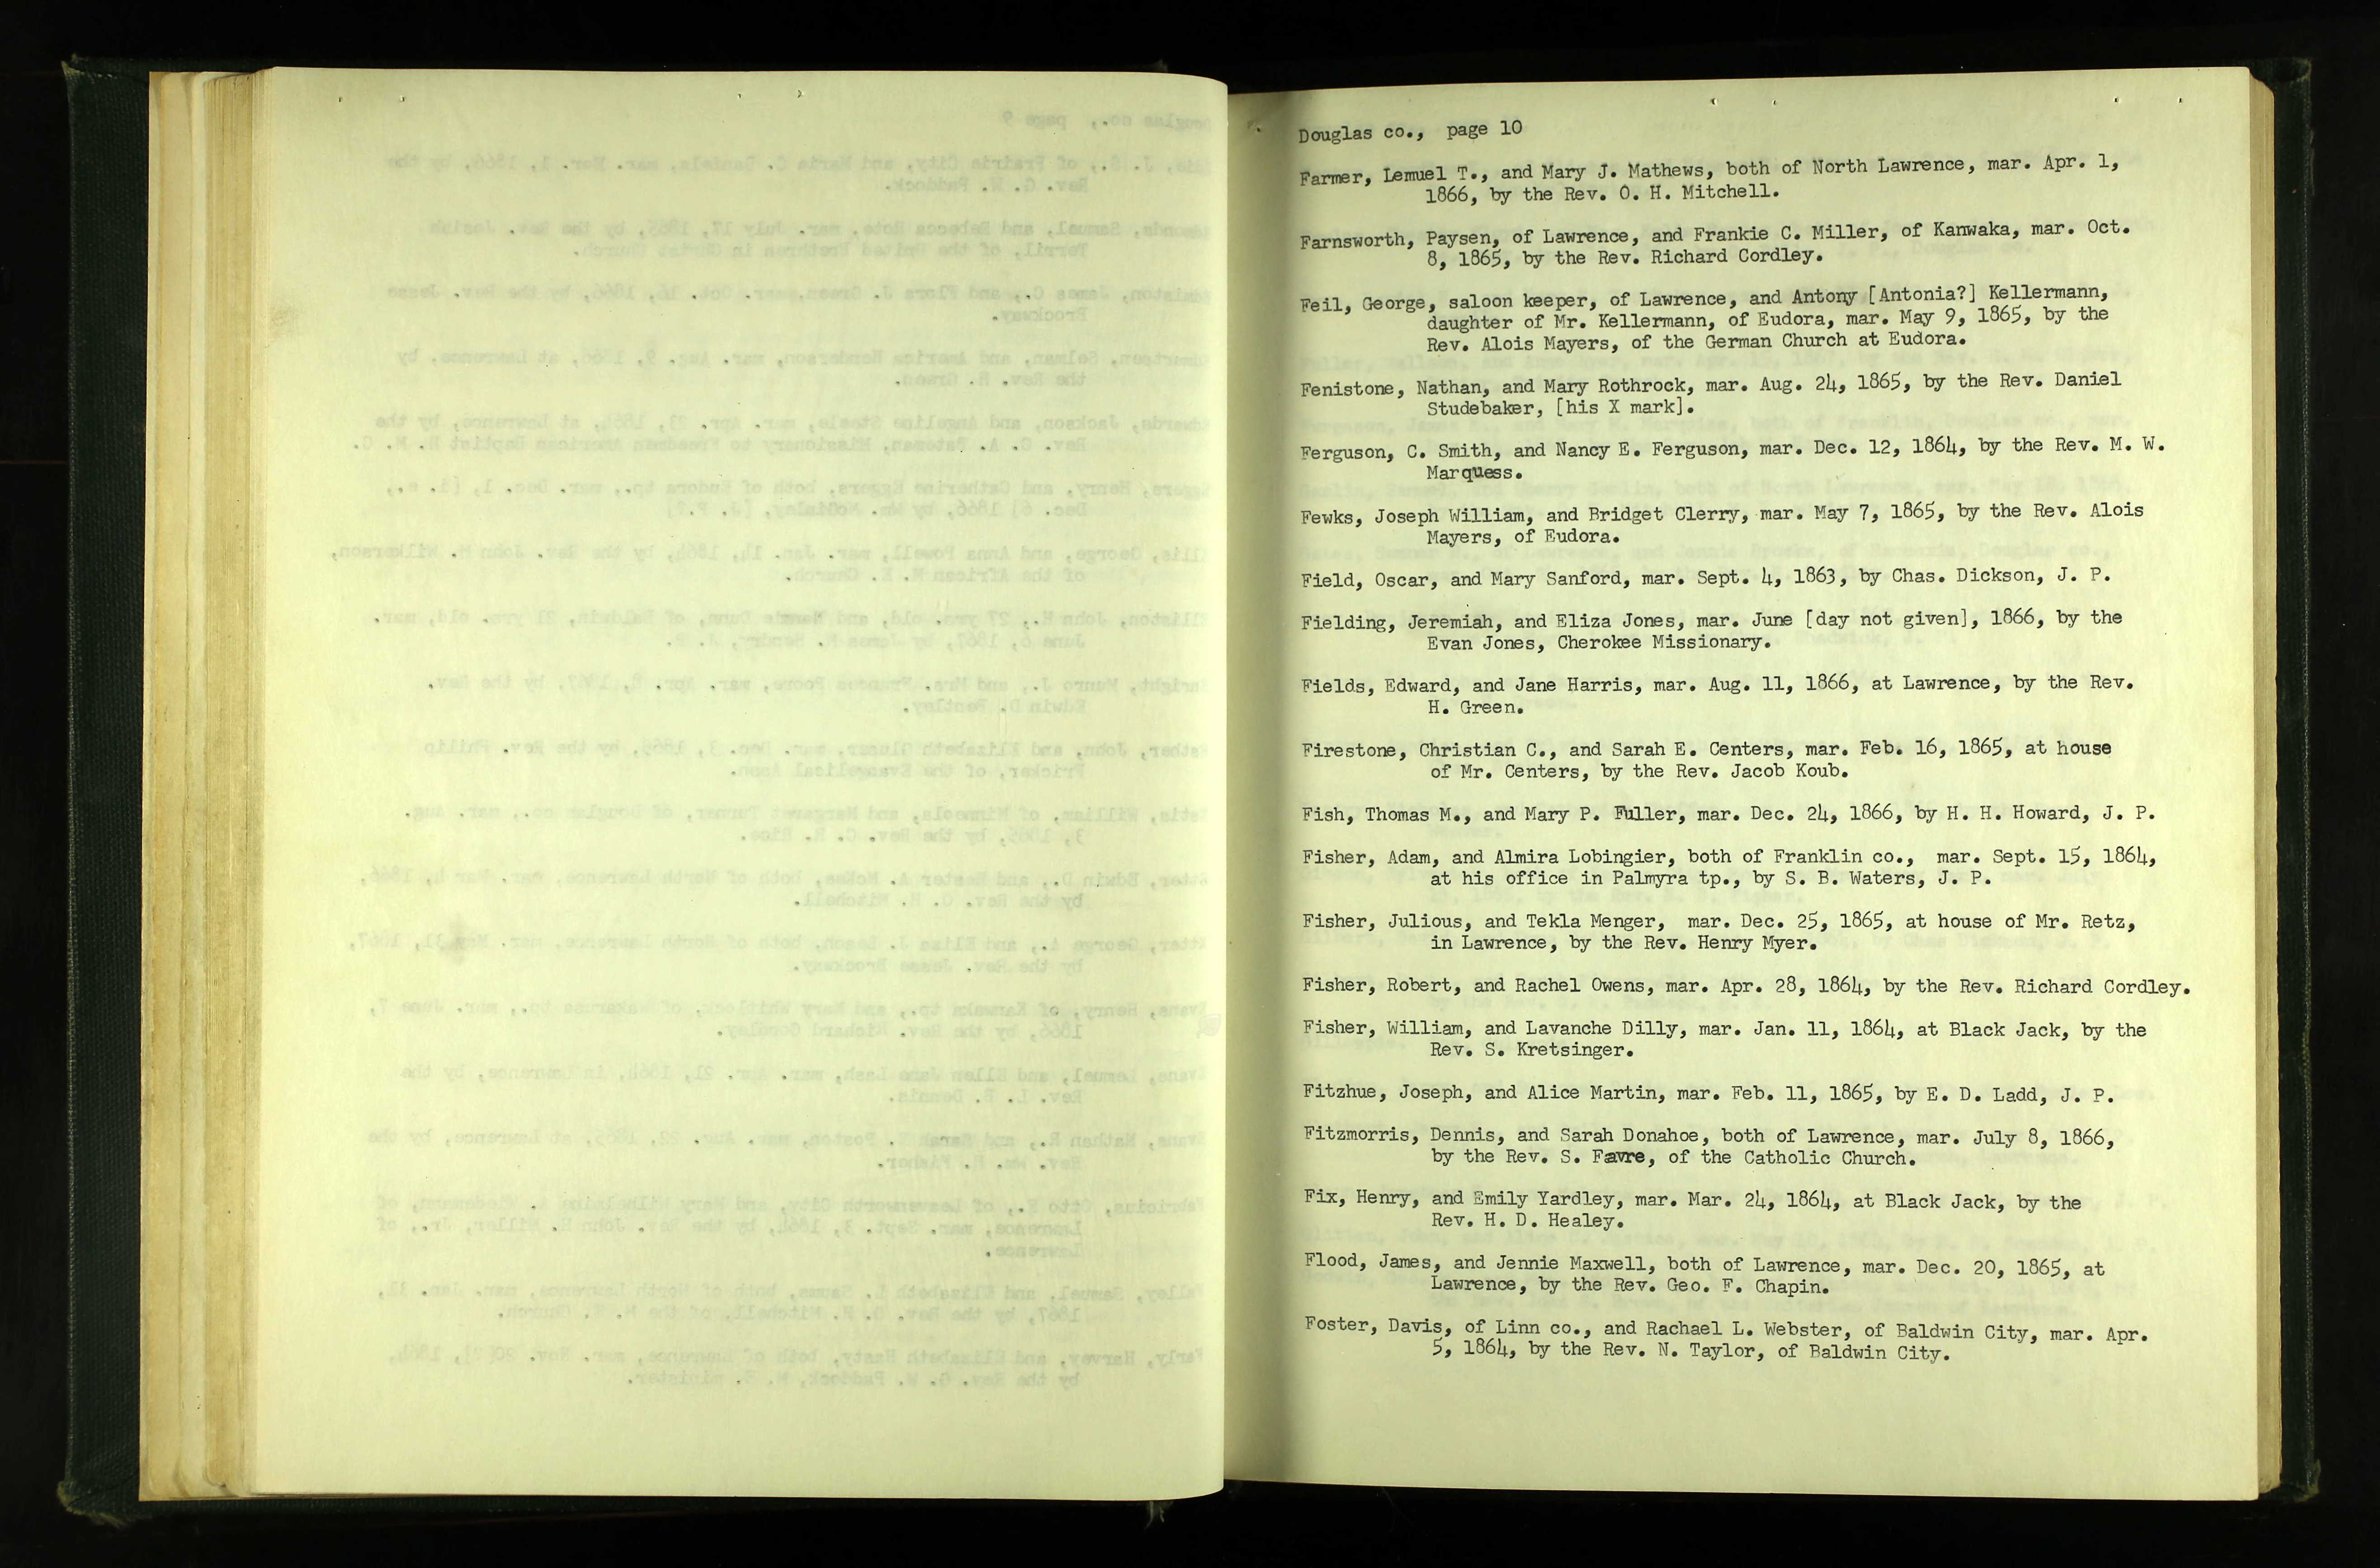 Douglas co., page 10
Farmer, Lemuel T., and Mary J. Mathews, both of North Lawrence, mar. Apr. 1,
1866, by the Rev. O. H. Mitchell.
Farnsworth, Paysen, of Lawrence, and Frankie C. Miller, of Kanwaka, mar. Oct.
8, 1865, by the Rev. Richard Cordley.
Feil, George, saloon keeper, of Lawrence, and Antony [Antonia?] Kellermann,
daughter of Mr. Kellermann, of Eudora, mar. May 9, 1865, by the
Rev. Alois Mayers, of the German Church at Eudora.
Fenistone, Nathan, and Mary Rothrock, mar. Aug. 24, 1865, by the Rev. Daniel
Studebaker, [his X mark].
Ferguson, C. Smith, and Nancy E. Ferguson, mar. Dec. 12, 1864, by the Rev. M. W.
Marquess.
Fewks, Joseph William, and Bridget Clerry, mar. May 7, 1865, by the Rev. Alois
Mayers, of Eudora.
Field, Oscar, and Mary Sanford, mar. Sept. 4, 1863, by Chas. Dickson, J. P.
Fielding, Jeremiah, and Eliza Jones, mar. June [day not given], 1866, by the
Evan Jones, Cherokee Missionary.
Fields, Edward, and Jane Harris, mar. Aug. 11, 1866, at Lawrence, by the Rev.
H. Green.
Firestone, Christian C., and Sarah E. Centers, mar. Feb. 16, 1865, at house
of Mr. Centers, by the Rev. Jacob Koub.
Fish, Thomas M., and Mary P. Fuller, mar. Dec. 24, 1866, by H. H. Howard, J. P.
Fisher, Adam, and Almira Lobingier, both of Franklin co., mar. Sept. 15, 1864,
at his office in Palmyra tp., by S. B. Waters, J. P.
Fisher, Julious, and Tekla Menger, mar. Dec. 25, 1865, at house of Mr. Retz,
in Lawrence, by the Rev. Henry Myer.
Fisher, Robert, and Rachel Owens, mar. Apr. 28, 1864, by the Rev. Richard Cordley.
Fisher, William, and Lavanche Dilly, mar. Jan. 11, 1864, at Black Jack, by the
Rev. S. Kretsinger.
Fitzhue, Joseph, and Alice Martin, mar. Feb. 11, 1865, by E. D. Ladd, J. P.
Fitzmorris, Dennis, and Sarah Donahoe, both of Lawrence, mar. July 8, 1866,
by the Rev. S. Favre, of the Catholic Church.
Fix, Henry, and Emily Yardley, mar. Mar. 24, 1864, at Black Jack, by the
Rev. H. D. Healey.
Flood, James, and Jennie Maxwell, both of Lawrence, mar. Dec. 20, 1865, at
Lawrence, by the Rev. Geo. F. Chapin.
Foster, Davis, of Linn co., and Rachael L. Webster, of Baldwin City, mar. Apr.
5, 1864, by the Rev. N. Taylor, of Baldwin City.